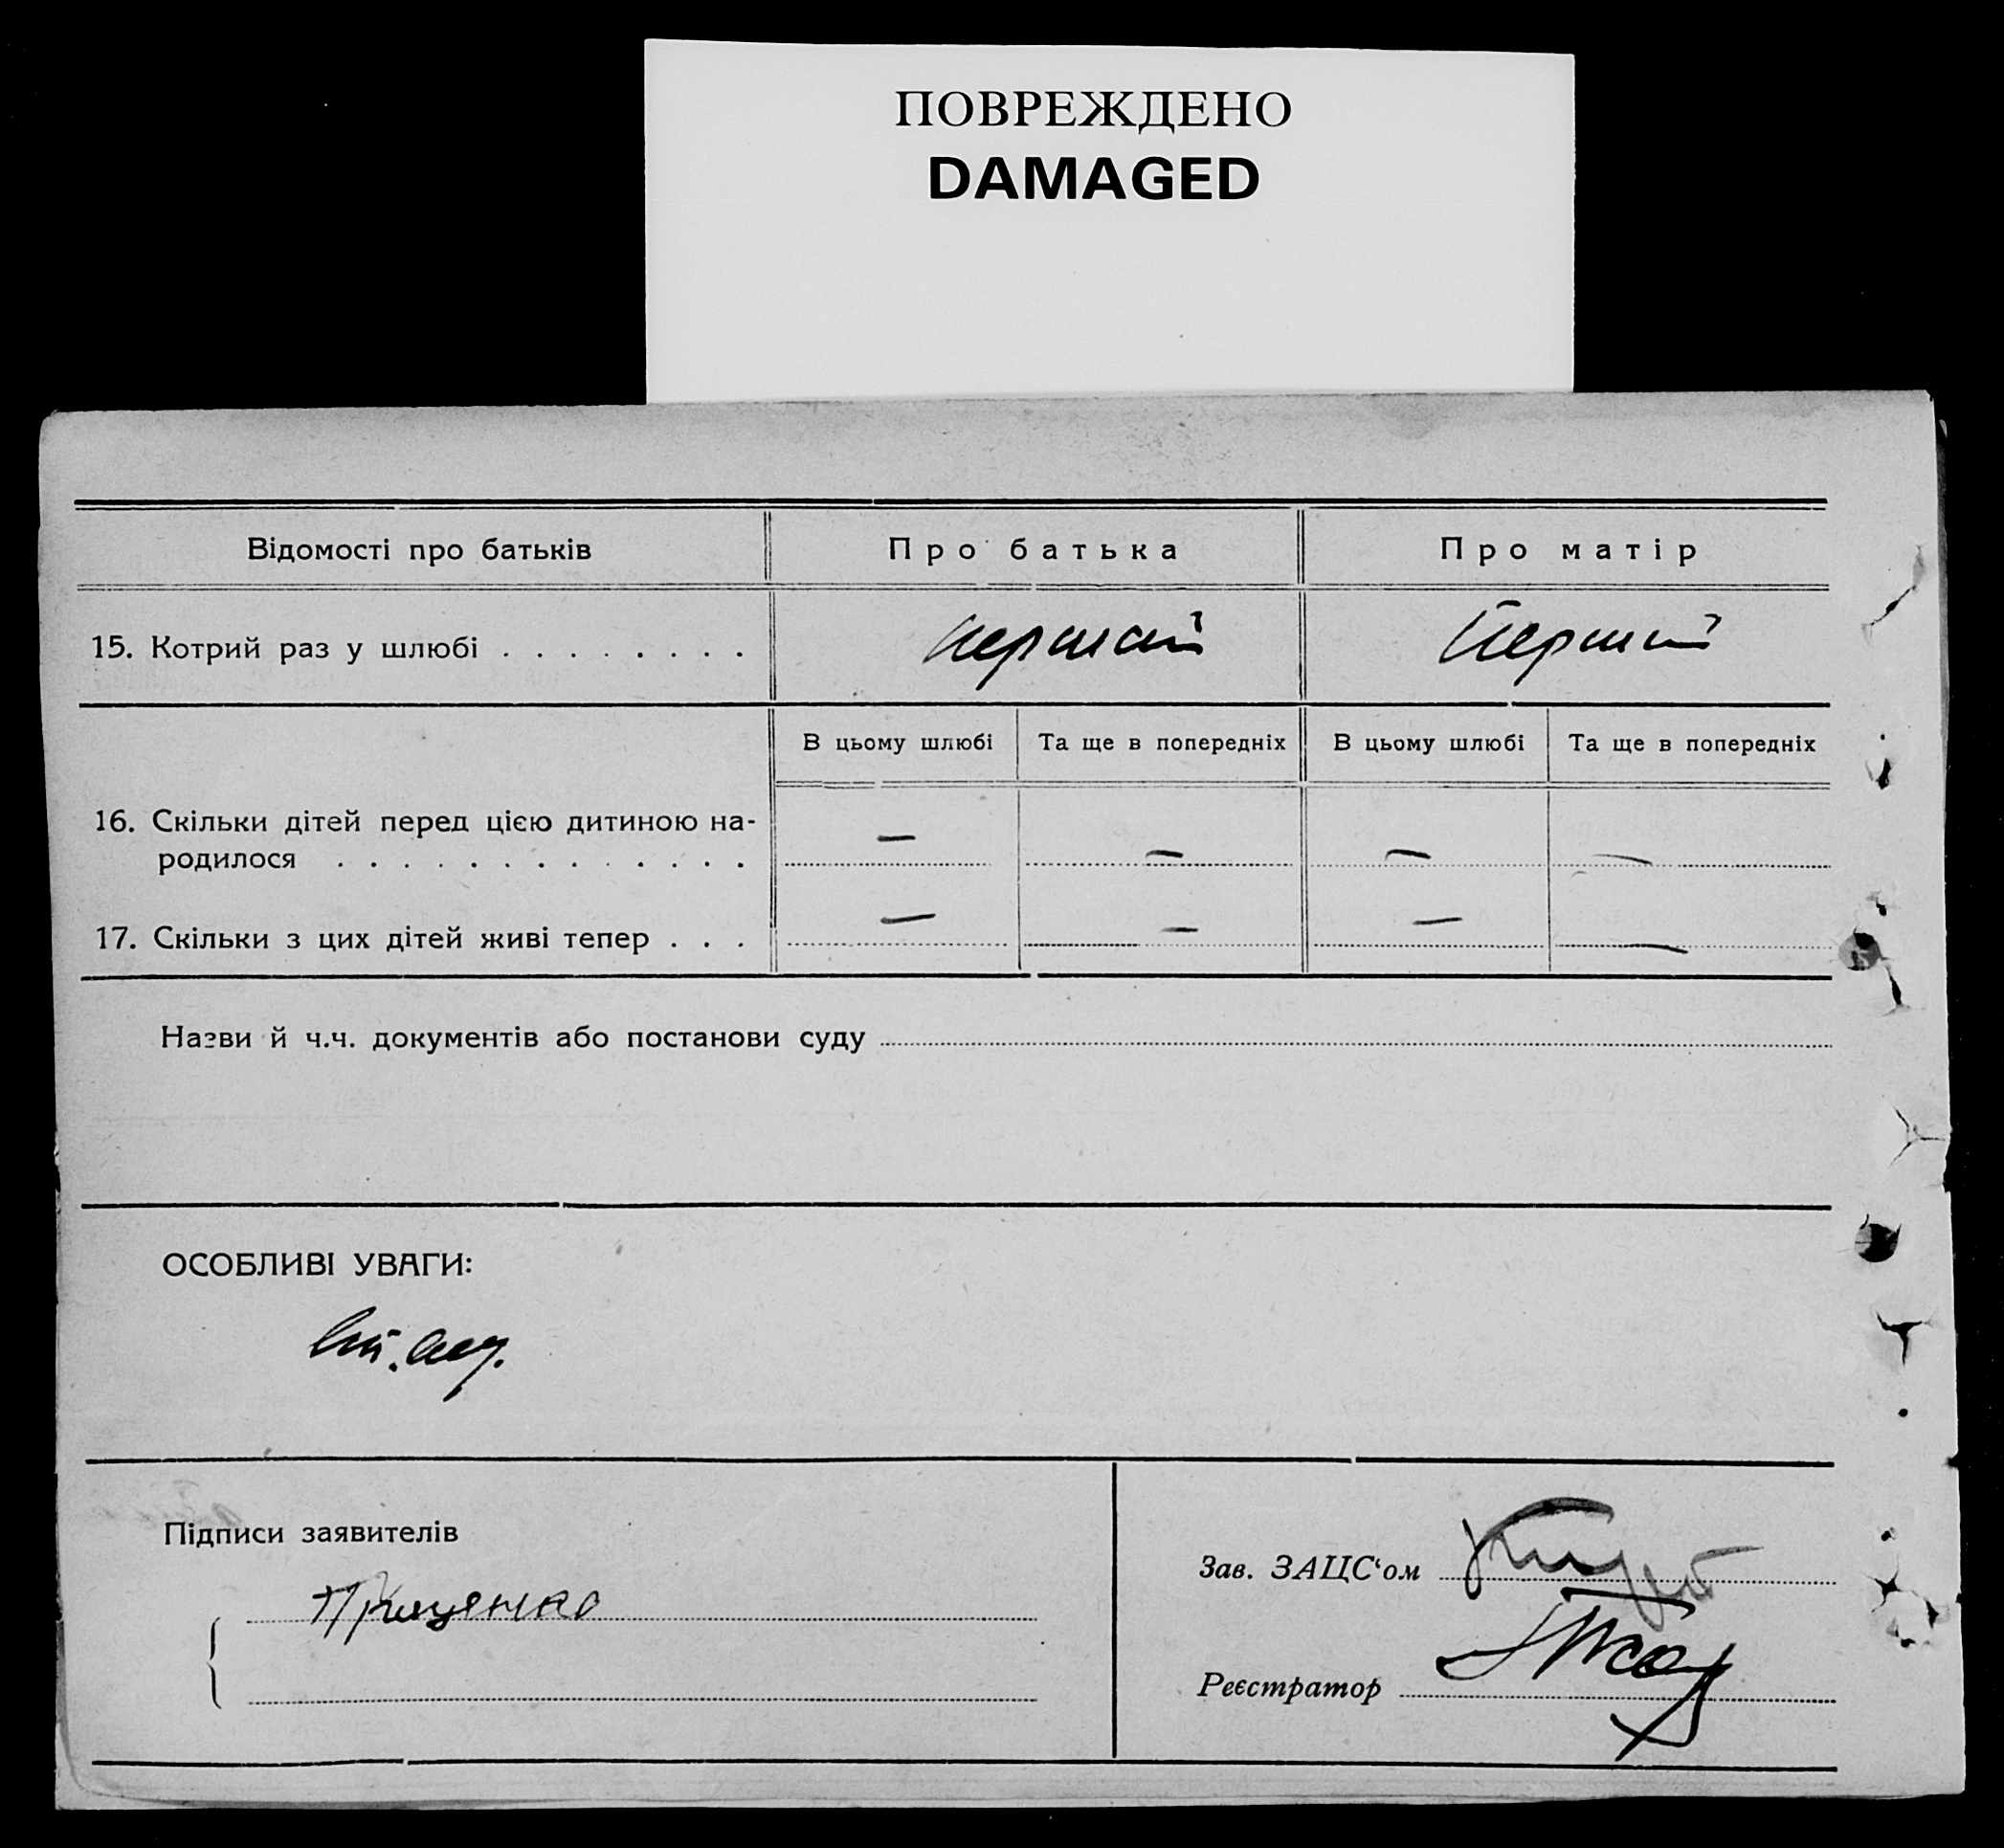 ПОВРЕЖДЕНО
DAMAGED
Відомості про батьків
Про батька
Про матір
15. Котрий раз у шлюбі . . . . . . . .
перший
Перший
В цьому шлюбі
Та ще в попередніх
В цьому шлюбі
Та ще в попередніх
16. Скільки дітей перед цією дитиною на-
родилося . . . . . . . . . . . . .
— — — —
17. Скільки з цих дітей живі тепер . . .
— — — —
Назви й ч.ч. документів або постанови суду
ОСОБЛИВІ УВАГИ:
Підписи заявителів
Зав. ЗАЦС‘ом
Реєстратор